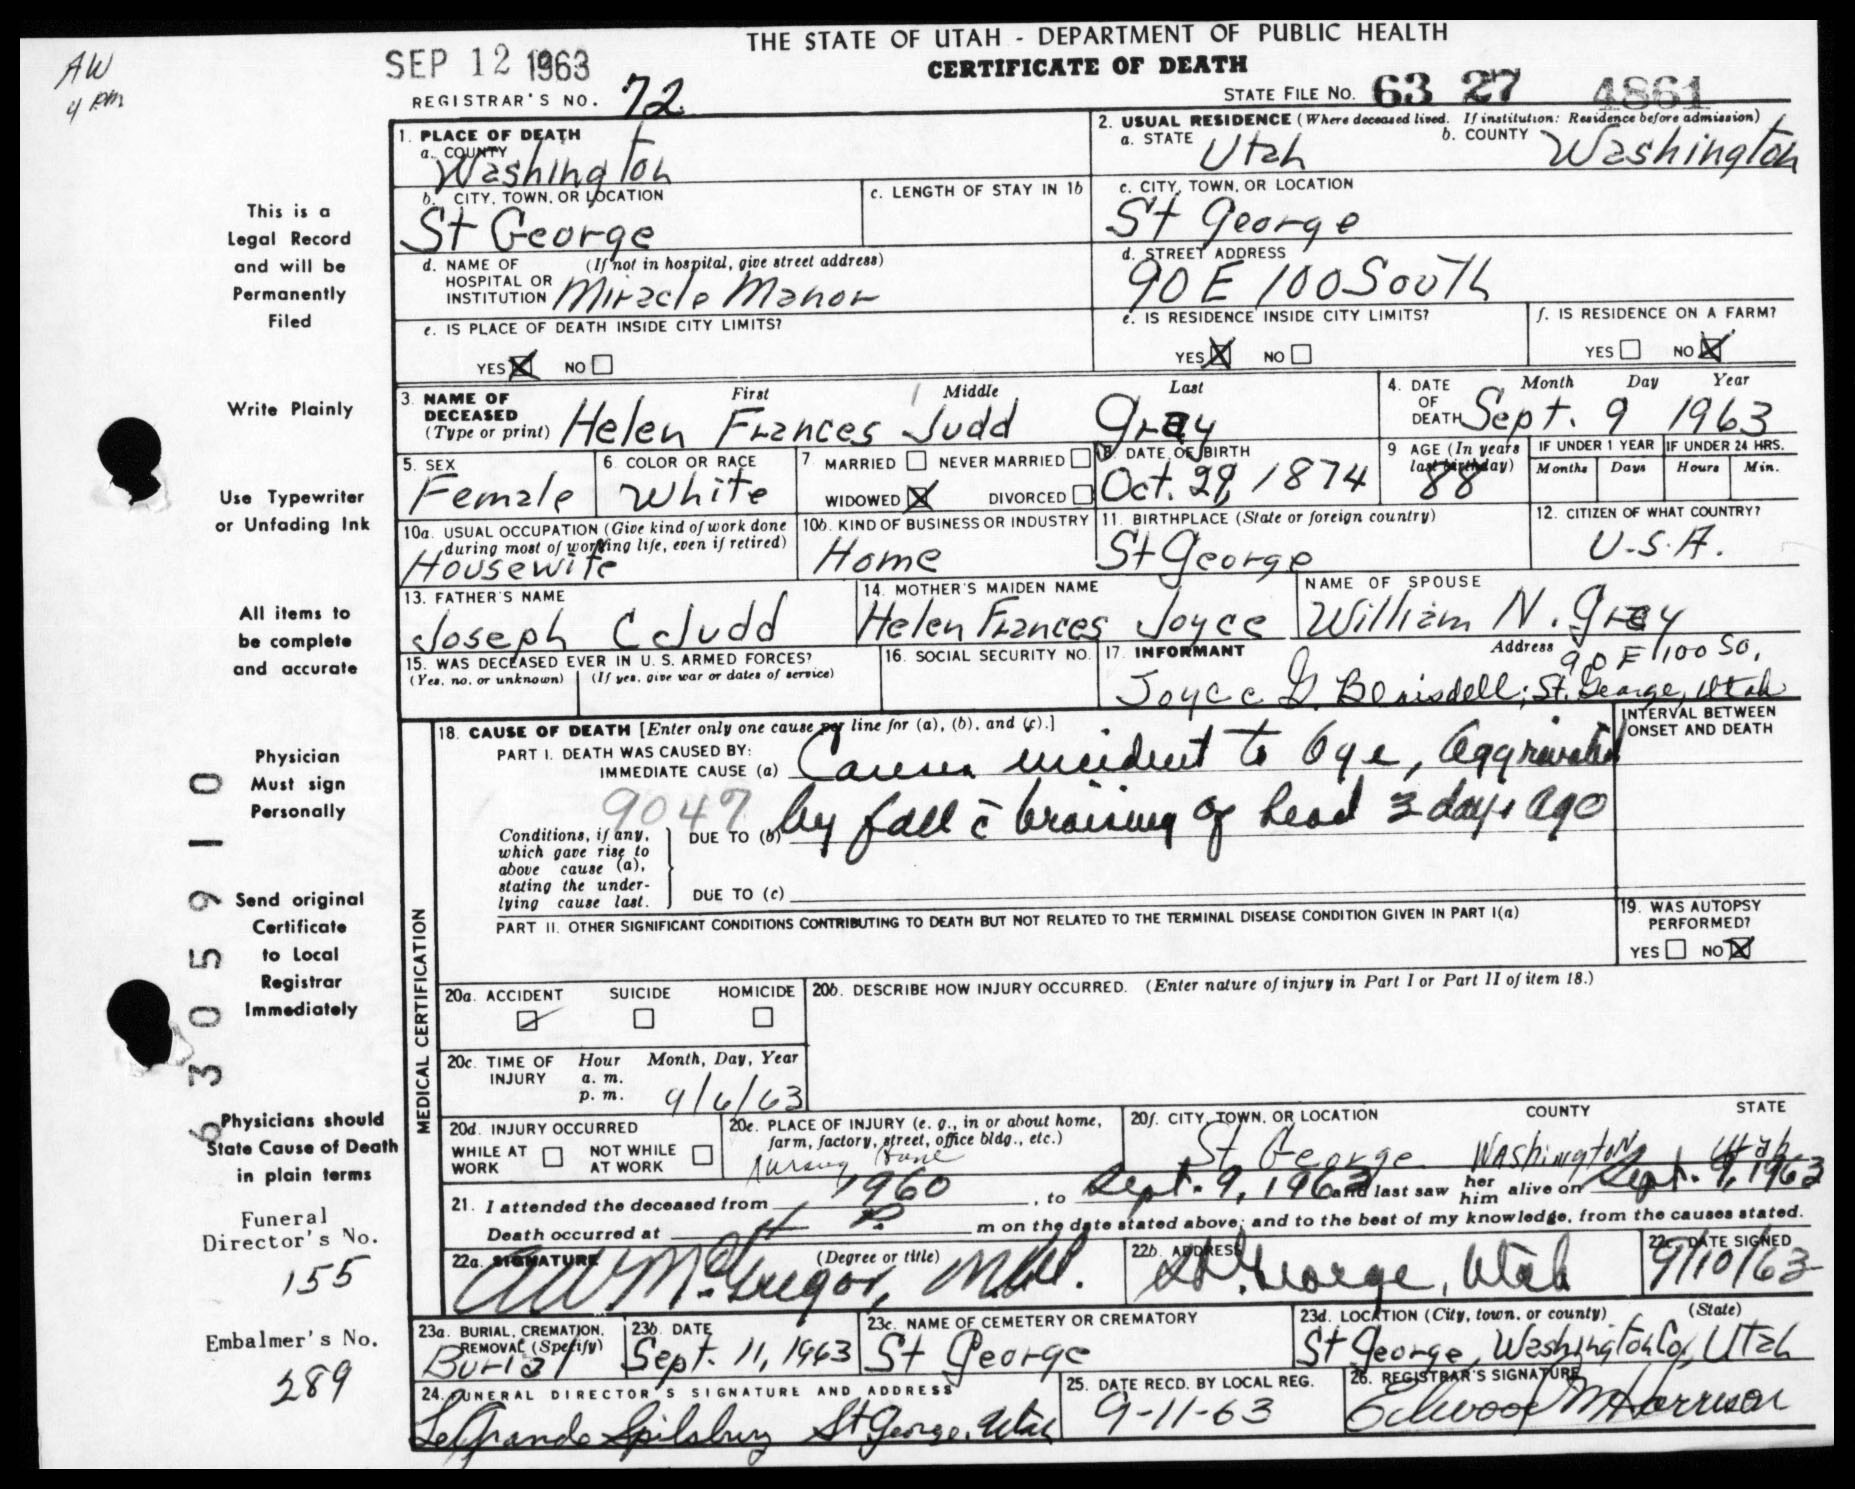 AW
4 PM
SEP 12 1963
THE STATE OF UTAH - DEPARTMENT OF PUBLIC HEALTH
CERTIFICATE OF DEATH
REGISTRAR'S NO. 72
STATE FILE NO. 63 27 4861
1. PLACE OF DEATH
a. COUNTY
Washington
2. USUAL RESIDENCE (Where deceased lived. If institution: Residence before admission)
a. STATE Utah
b. COUNTY Washington
b. CITY, TOWN, OR LOCATION
St George
c. LENGTH OF STAY IN 1b
c. CITY, TOWN, OR LOCATION
St George
d. NAME OF HOSPITAL OR INSTITUTION (If not in hospital, give street address)
Miracle Manor
d. STREET ADDRESS
90 E 100 South
e. IS PLACE OF DEATH INSIDE CITY LIMITS?
YES NO
e. IS RESIDENCE INSIDE CITY LIMITS?
YES NO
f. IS RESIDENCE ON A FARM?
YES NO
3. NAME OF DECEASED (Type or print)
First Middle Last
Helen Frances Judd Gray
4. DATE OF DEATH
Month Day Year
Sept. 9 1963
5. SEX
Female
6. COLOR OR RACE
White
7. MARRIED NEVER MARRIED
WIDOWED DIVORCED
8. DATE OF BIRTH
Oct. 29, 1874
9 AGE (In years last birthday)
88
IF UNDER 1 YEAR IF UNDER 24 HRS.
Months Days Hours Min.
10a. USUAL OCCUPATION (Give kind of work done during most of working life, even if retired)
Housewife
10b. KIND OF BUSINESS OR INDUSTRY
Home
11. BIRTHPLACE (State or foreign country)
St George
12. CITIZEN OF WHAT COUNTRY?
U.S.A.
13. FATHER'S NAME
Joseph C Judd
14. MOTHER'S MAIDEN NAME
Helen Frances Joyce
NAME OF SPOUSE
William N. Gray
15. WAS DECEASED EVER IN U. S. ARMED FORCES?
(Yes, no, or unknown) (If yes, give war or dates of service)
16. SOCIAL SECURITY NO.
17. INFORMANT Address
90 E 100 So.
Joyce G. Blaisdell; St. George, Utah
18. CAUSE OF DEATH [Enter only one cause per line for (a), (b), and (c).]
INTERVAL BETWEEN ONSET AND DEATH
PART I. DEATH WAS CAUSED BY:
IMMEDIATE CAUSE (a) Causes incident to age, aggravated
9047
DUE TO (b) by fall c̄ bruising of head 3 days ago
Conditions, if any, which gave rise to above cause (a), stating the underlying cause last.
DUE TO (c)
PART II. OTHER SIGNIFICANT CONDITIONS CONTRIBUTING TO DEATH BUT NOT RELATED TO THE TERMINAL DISEASE CONDITION GIVEN IN PART I(a)
19. WAS AUTOPSY PERFORMED?
YES NO
MEDICAL CERTIFICATION
20a. ACCIDENT SUICIDE HOMICIDE
20b. DESCRIBE HOW INJURY OCCURRED. (Enter nature of injury in Part I or Part II of item 18.)
20c. TIME OF INJURY Hour Month, Day, Year
a. m.
p. m. 9/6/63
20d. INJURY OCCURRED
WHILE AT WORK NOT WHILE AT WORK
20e. PLACE OF INJURY (e. g., in or about home, farm, factory, street, office bldg., etc.)
Nursing Home
20f. CITY, TOWN, OR LOCATION COUNTY STATE
St George Washington Utah
21. I attended the deceased from 1960, to Sept. 9, 1963 and last saw her him alive on Sept. 9, 1963
Death occurred at 4 P. m on the date stated above; and to the best of my knowledge, from the causes stated.
22a. SIGNATURE (Degree or title)
AW McGregor, M.D.
22b. ADDRESS
St. George, Utah
22c. DATE SIGNED
9/10/63
23a. BURIAL, CREMATION, REMOVAL (Specify)
Burial
23b. DATE
Sept. 11, 1963
23c. NAME OF CEMETERY OR CREMATORY
St George
23d. LOCATION (City, town, or county) (State)
St George, Washington Co, Utah
24. FUNERAL DIRECTOR'S SIGNATURE AND ADDRESS
LeGrande Spilsbury St George, Utah
25. DATE RECD. BY LOCAL REG.
9-11-63
26. REGISTRAR'S SIGNATURE
Elwood M Harrison
This is a
Legal Record
and will be
Permanently
Filed
Write Plainly
Use Typewriter
or Unfading Ink
All items to
be complete
and accurate
Physician
Must sign
Personally
Send original
Certificate
to Local
Registrar
Immediately
Physicians should
State Cause of Death
in plain terms
Funeral
Director's No.
155
Embalmer's No.
289
6305910